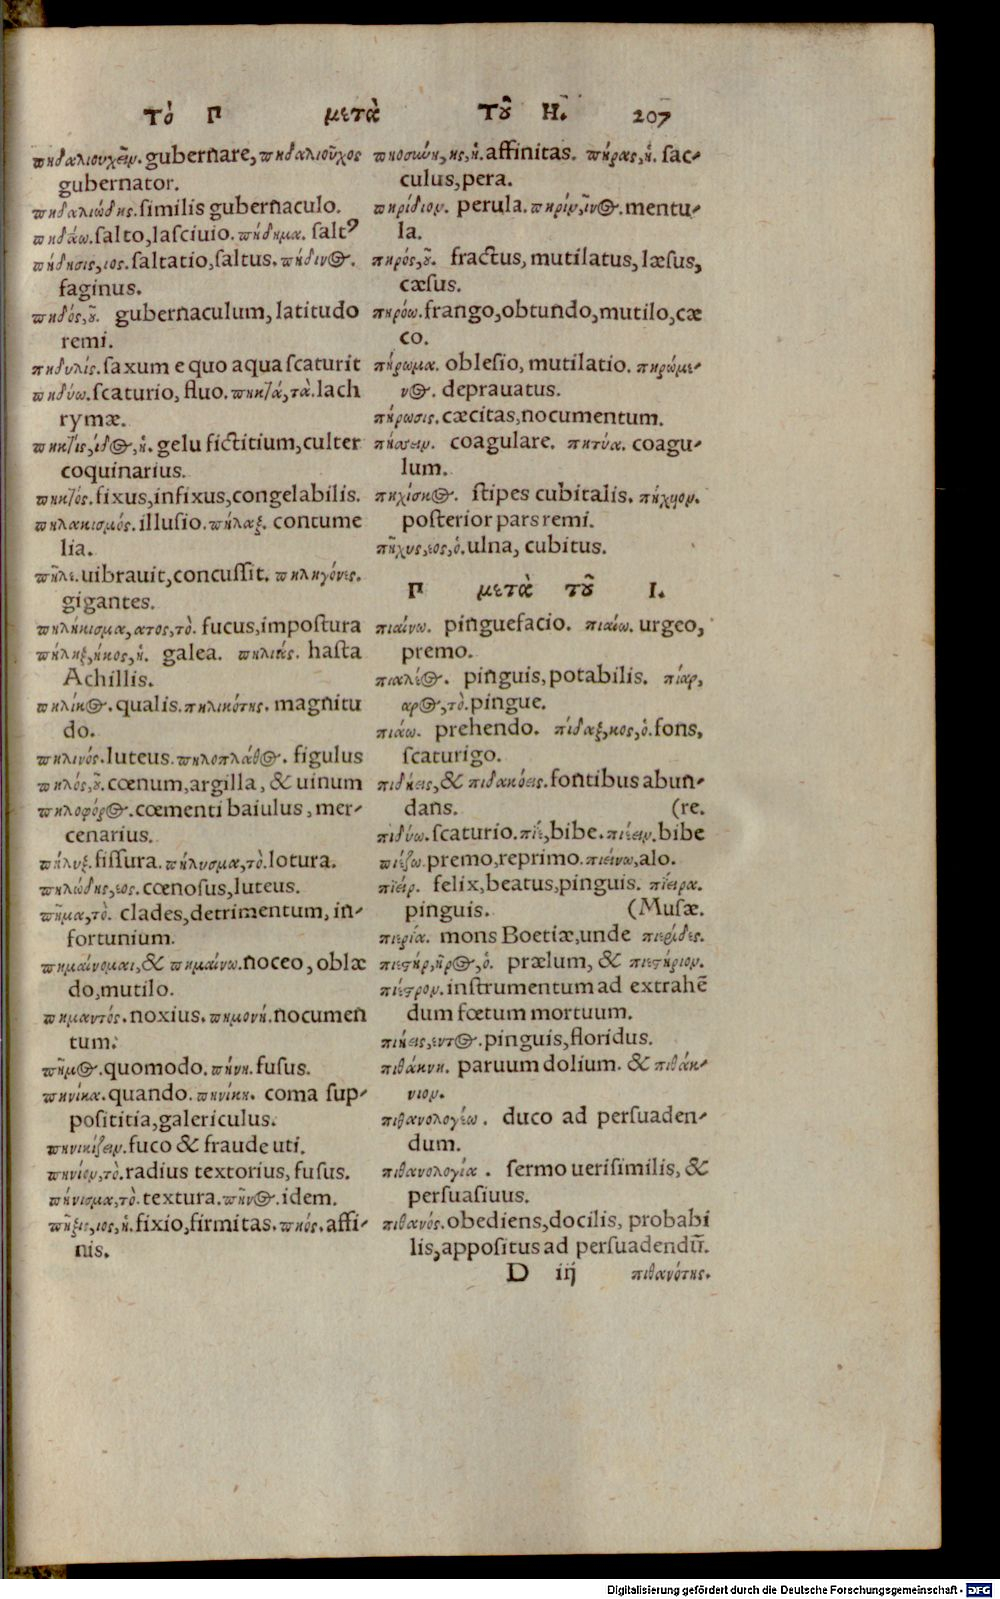 τὸ Π μετὰ τοῦ Η. 207
πηδαλιουχεῖν. gubernare, πηδαλιοῦχος
gubernator.
πηδαλιώδης. similis gubernaculo.
πηδάω. salto, lasciuio. πήδημα. saltꝰ
πήδησις, ιος. saltatio, saltus. πήδινος.
faginus.
πηδός, οῦ. gubernaculum, latitudo
remi.
πηδυλίς. saxum e quo aqua scaturit
πηδύω. scaturio, fluo. πηκτά, τὰ. lach
rymæ.
πηκτὶς, ίδος, ἡ. gelu fictitium, culter
coquinarius.
πηκτός. fixus, infixus, congelabilis.
πηλακισμός. illusio. πήλαξ. contume
lia.
πῆλε. uibrauit, concussit. πηληγόνες.
gigantes.
πηλήκισμα, ατος, τὸ. fucus, impostura
πήληξ, ηκος, ἡ. galea. πηλιὰς. hasta
Achillis.
πηλίκος. qualis. πηλικότης. magnitu
do.
πηλινός. luteus. πηλοπλάθος. figulus
πηλός, οῦ. cœnum, argilla, & uinum
πηλοφόρος. cœmenti baiulus, mer-
cenarius.
πήλυξ. fissura. πήλυσμα, τὸ. lotura.
πηλώδης, εος. cœnosus, luteus.
πῆμα, τὸ. clades, detrimentum, in-
fortunium.
πημαίνομαι, & πημαίνω. noceo, oblæ
do, mutilo.
πημαντός. noxius. πημονή. nocumen
tum.
πῆμος. quomodo. πήνη. fusus.
πηνίκα. quando. πηνίκη. coma sup-
posititia, galericulus.
πηνικίζειν. fuco & fraude uti.
πηνίον, τὸ. radius textorius, fusus.
πήνισμα, τὸ. textura. πῆνος. idem.
πῆξις, ιος, ἡ. fixio, firmitas. πηός. affi-
nis.
πηοσύνη, ης, ἡ. affinitas. πήρας, ἡ. sac-
culus, pera.
πηρίδιον. perula. πηρίν, ῖνος. mentu-
la.
πηρός, οῦ. fractus, mutilatus, læsus,
cæsus.
πηρόω. frango, obtundo, mutilo, cæ
co.
πήρωμα. oblesio, mutilatio. πηρώμε-
νος. deprauatus.
πήρωσις. cæcitas, nocumentum.
πήσσειν. coagulare. πητύα. coagu-
lum.
πηχίσκος. stipes cubitalis. πήχυον.
posterior pars remi.
πῆχυς, εος, ὁ. ulna, cubitus.
Π μετὰ τοῦ Ι.
πιαίνω. pinguefacio. πιαίω. urgeo,
premo.
πιαλέος. pinguis, potabilis. πίαρ,
αρος, τὸ. pingue.
πιάω. prehendo. πίδαξ, κος, ὁ. fons,
scaturigo.
πιδήεις, & πιδακόεις. fontibus abun-
dans. (re.
πιδύω. scaturio. πίε, bibe. πιέειν. bibe
πιέζω. premo, reprimo. πιείνω, alo.
πίειρ. felix, beatus, pinguis. πίειρα.
pinguis. (Musæ.
πιερία. mons Boetiæ, unde πιερίδες.
πιεστήρ, ῆρος, ὁ. prælum, & πιεστήριον.
πιέστρον. instrumentum ad extrahē
dum fœtum mortuum.
πιήεις, εντος. pinguis, floridus.
πιθάκνη. paruum dolium. & πιθάκ-
νιον.
πιθανολογέω. duco ad persuaden-
dum.
πιθανολογία. sermo uerisimilis, &
persuasiuus.
πιθανός. obediens, docilis, probabi
lis, appositus ad persuadendū.
D iij πιθανότης.
Digitalisierung gefördert durch die Deutsche Forschungsgemeinschaft - DFG